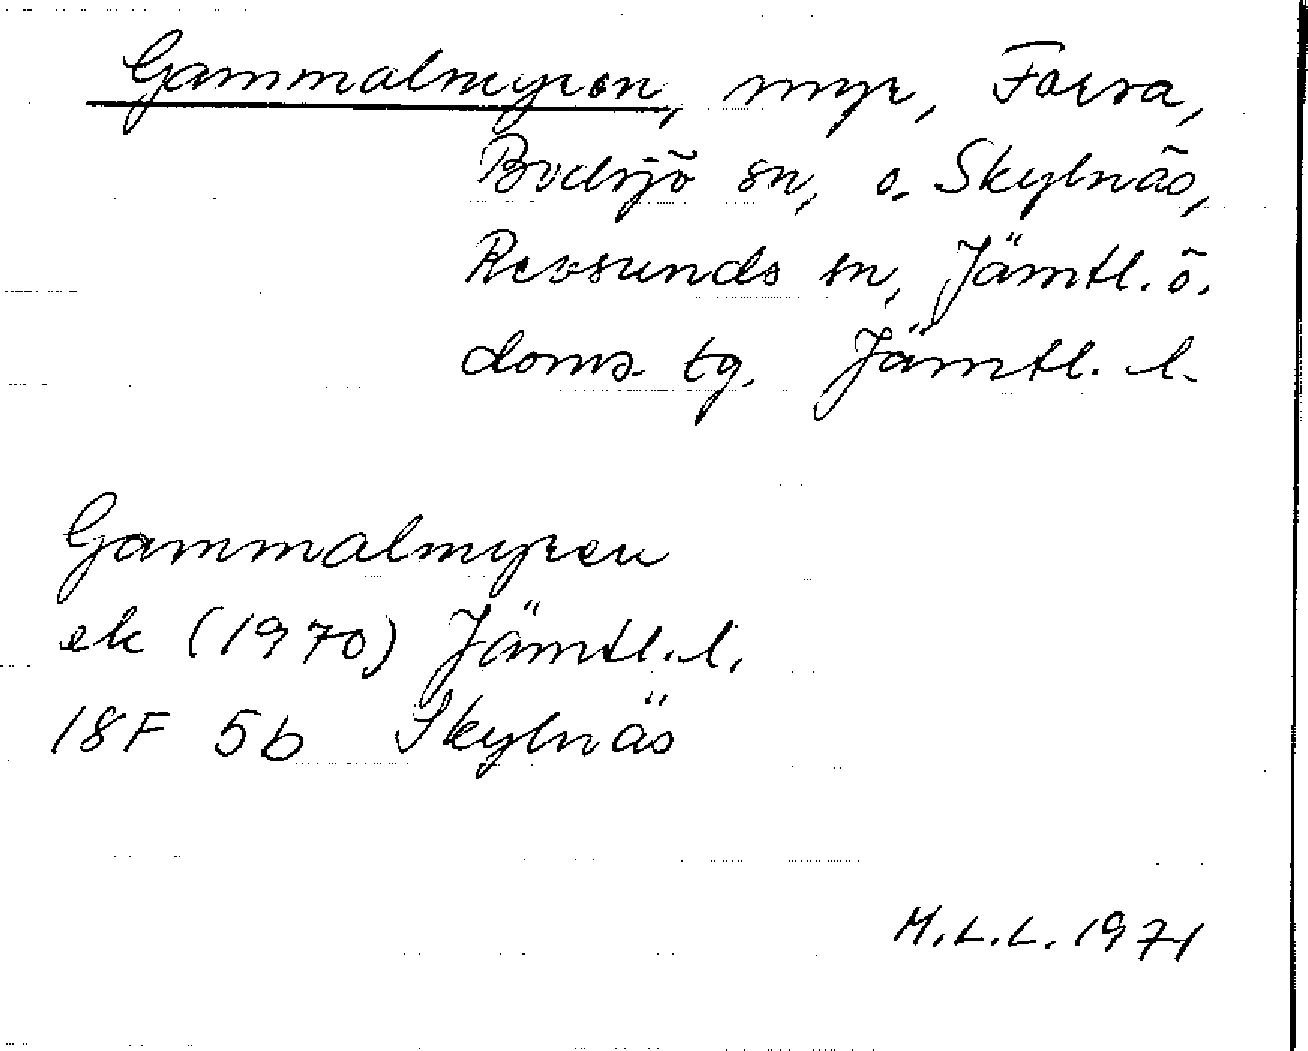 Gammalmyren, myr, Forsa,
Bodsjö sn, o. Skylnäs,
Revsunds sn, Jämtl. ö.
doms. tg. Jämtl. l.
Gammalmyren
ek (1970) Jämtl. l.
18F 5b Skylnäs
M.L.L. 1971